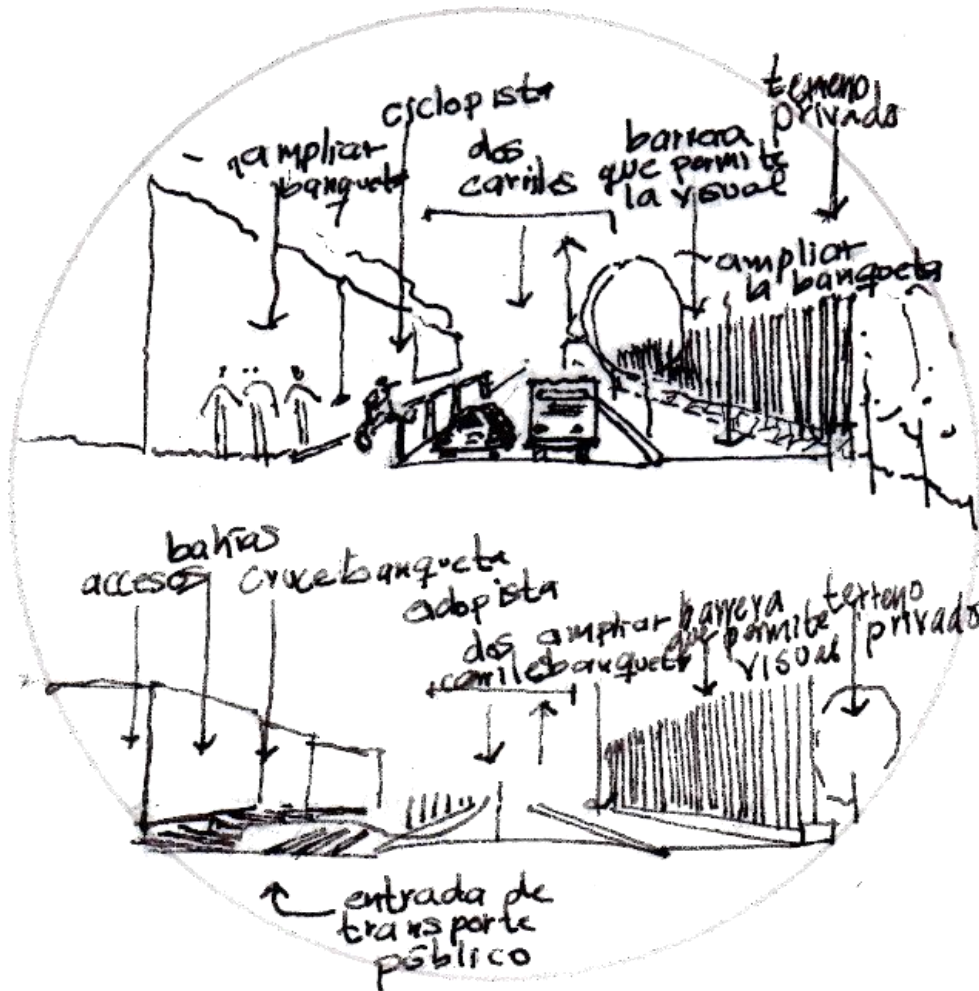 ampliar
banqueta
ciclopista
dos
carriles
barrera
que permite
la visual
terreno
privado
ampliar
la banqueta
accesos
bahías
cruce banqueta
ciclopista
dos
carriles
ampliar
banqueta
barrera
que permite
visual
terreno
privado
entrada de
transporte
público